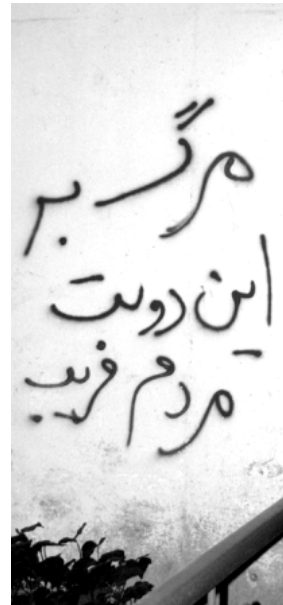 مرگ بر
این دولت
مردم فریب